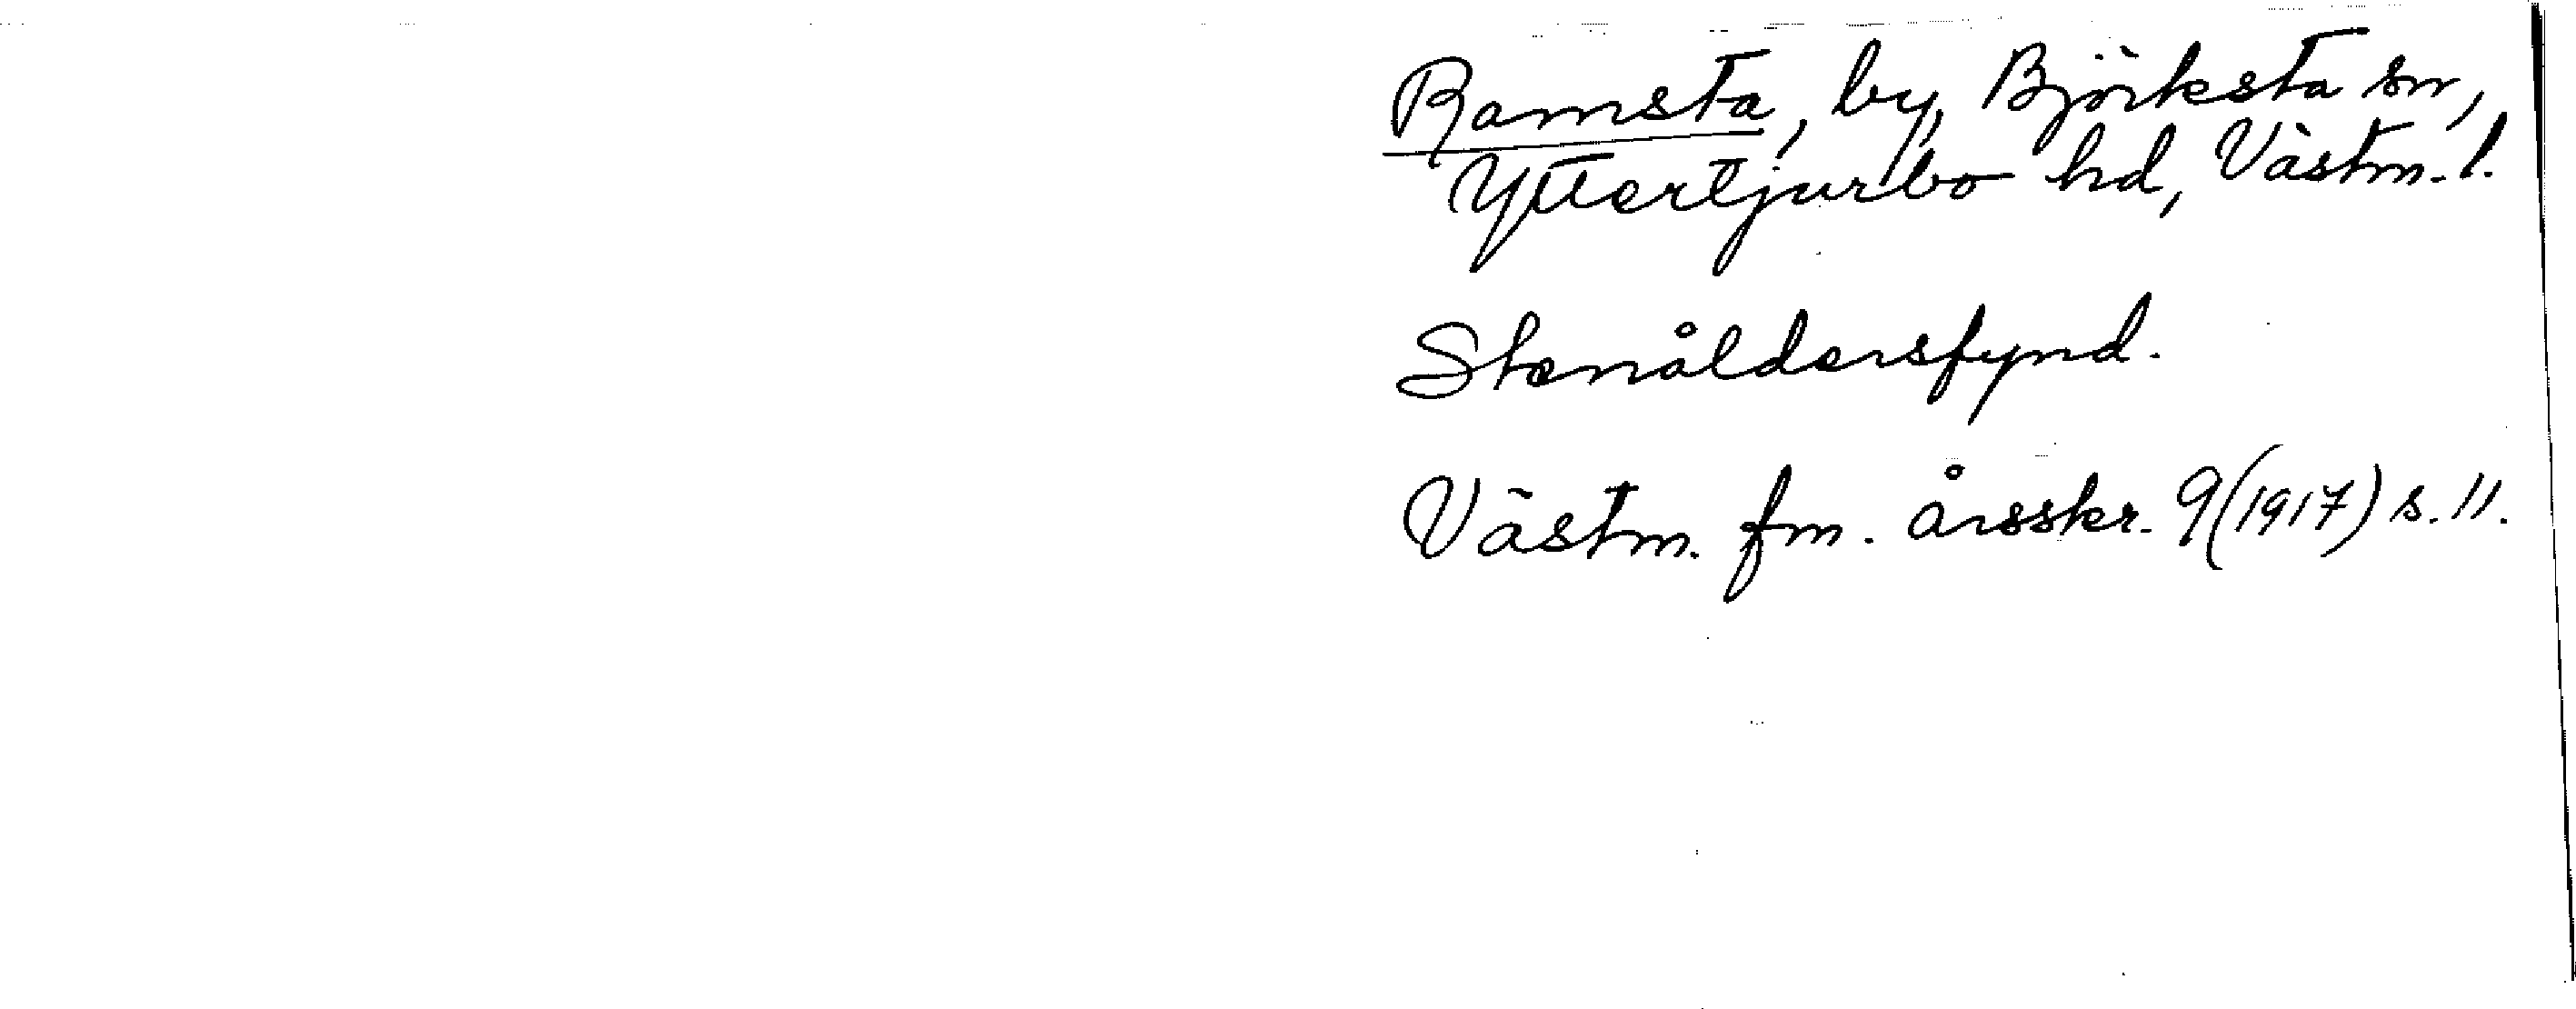 Ramsta, by, Björksta sn,
Yttertjurbo hd, Västm. l.
Stenåldersfynd.
Västm. fm. årsskr. 9(1917) s. 11.